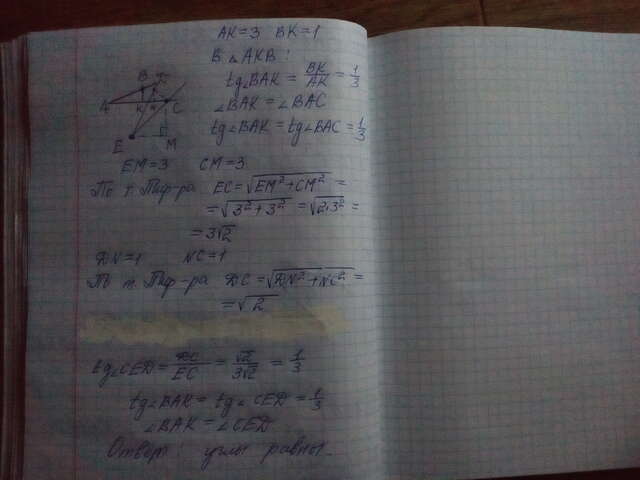 AK=3 BK=1
В △AKB:
tg∠BAK = BK/AK = 1/3
∠BAK = ∠BAC
tg∠BAK = tg∠BAC = 1/3
B D
A K N C
E M
EM=3 CM=3
По т. Пиф-ра EC=√EM²+CM² =
=√3²+3² =√2·3² =
= 3√2
DN=1 NC=1
По т. Пиф-ра DC=√DN²+NC² =
=√2
tg∠CED = DC/EC = √2/3√2 = 1/3
tg∠BAK = tg∠CED = 1/3
∠BAK = ∠CED
Ответ: углы равны.